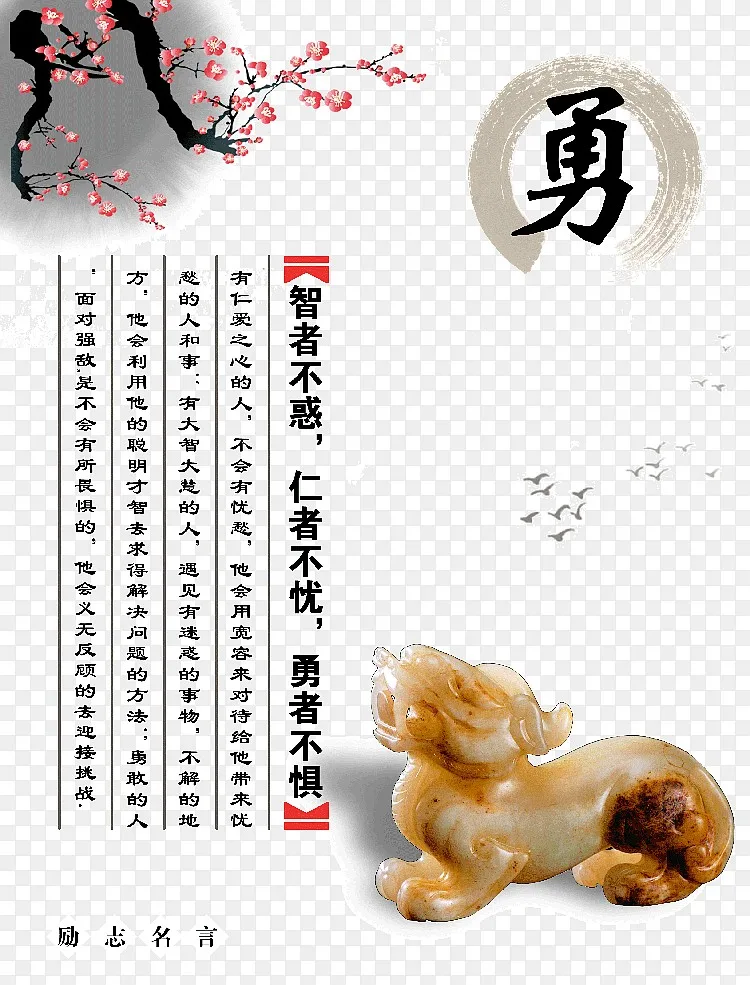 勇
智者不惑，仁者不忧，勇者不惧
有仁爱之心的人，不会有忧愁，他会用宽容来对待给他带来忧
愁的人和事；有大智大慧的人，遇见有迷惑的事物，不解的地
方，他会利用他的聪明才智去求得解决问题的方法；勇敢的人
，面对强敌是不会有所畏惧的，他会义无反顾的去迎接挑战.
励志名言